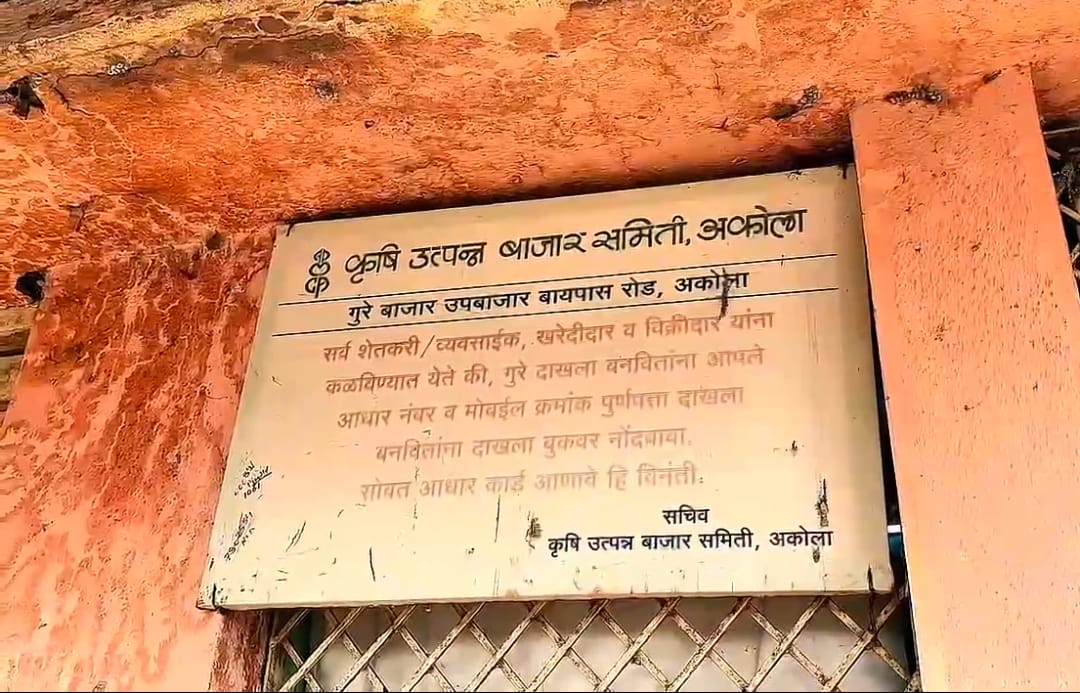 कृषि उत्पन्न बाजार समिती, अकोला
गुरे बाजार उपबाजार बायपास रोड, अकोला
सर्व शेतकरी/व्यवसाईक, खरेदीदार व विक्रीदार यांना
कळविण्यात येते की, गुरे दाखला बनवितांना आपले
आधार नंबर व मोबईल क्रमांक पुर्णपत्ता दाखला
बनवितांना दाखला बुकवर नोंदवावा.
सोबत आधार कार्ड आणावे हि विनंती.
सचिव
कृषि उत्पन्न बाजार समिती, अकोला